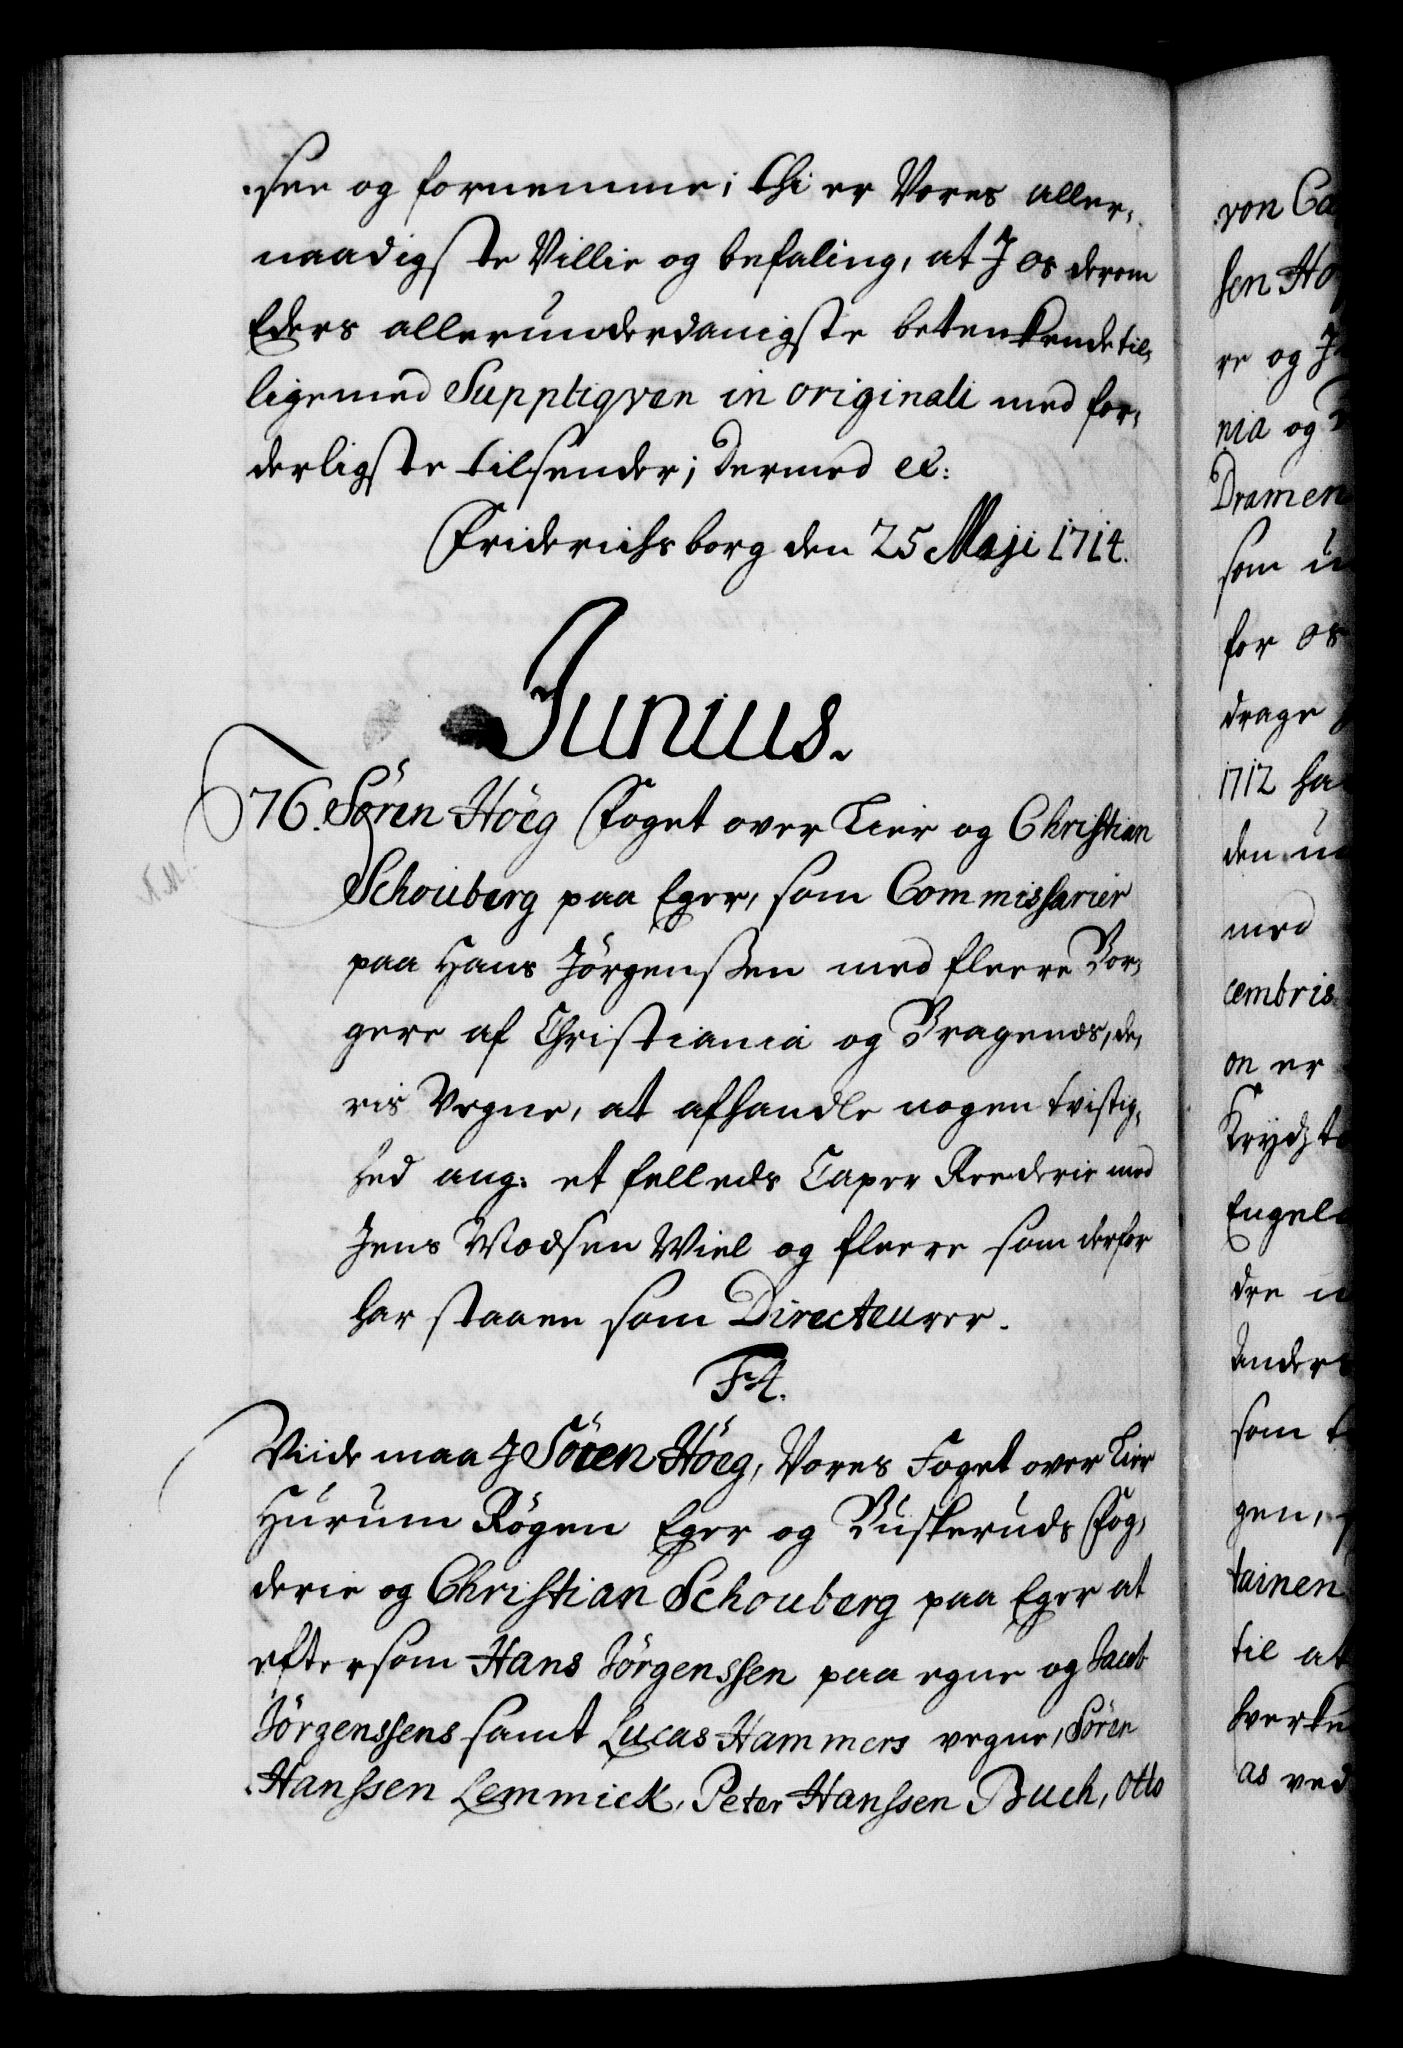 see og fornemme; thi er Vores aller,
naadigste Villie og befaling, at I os derom
Eders allerunderdanigste betenkende til,
ligemed Suppliqven in originali med for,
derligste tilsender; dermed etc:
Friderichsborg den 25 Maji 1714.
Junius.
76. Sören Höeg Foget over Lier og Christian
N.M.
Schouberg paa Eger, som Commissarier
paa Hans Jörgenssen med fleere Bor,
gere af Christiania og Bragenæs, de,
ris Vegne, at afhandle nogen tvistig,
hed ang: et felleds Caper Reederie med
Jens Madsen Wiel og fleere som derfor
har staaen som Directeurer.
F4.
Viide maa I Sören Höeg, Vores Foget over Lier
Hurum Rögen Eger og Buskeruds Fog,
derie og Christian Schouberg paa Eger at
eftersom Hans Jörgenssen paa egne og Jacob
Jörgenssens samt Lucas Hammers vegne, Sören
Hanssen Lemmick, Peter Hanssen Buch, Otto
von Ca
sen Hö
re og J
nia og
Dramen
som u
for os
drage
1712 ha
den u
med
cembris
on er
Krydzt
Engel
dre
Anders
som
gen,
tainen
til at
hverke
as ved